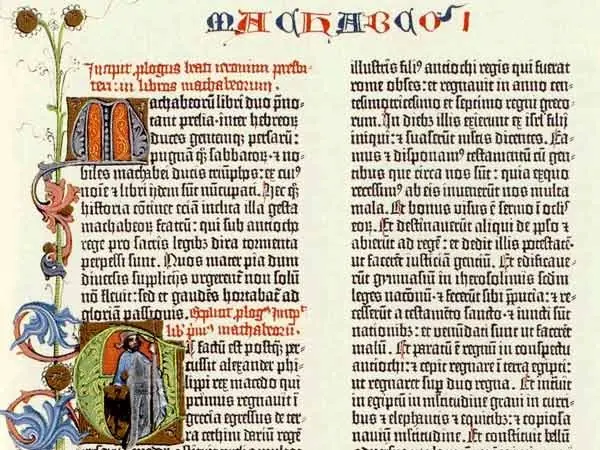 MACHABEOꝝ I
Incipit ꝓlogus beati ieronimi presbi-
teri in libros machabeorum.
Machabeorũ libri duo p̃no-
tant prelia · inter hebreoꝝ
duces gentemqꝫ persarũ:
pugnam qꝫ sabbatoꝝ · et no-
biles machabei ducis triũphos: ex cuiꝰ
noĩe et libri ijdem sũt nũcupati. Hec qꝫ
historia cõtinet eciã inclita illa gesta
machabeoꝝ fratrũ: qui sub antiocho
rege pro sacris legibꝫ dira tormenta
perpessi sunt. Quos mater pia dum
diuersis supplicijs urgerent non solũ
nõ fleuit: sed et gaudẽs hortabat̃ ad
gloriam passionis. Explicit ꝓlogꝰ Incĩpt
lib' p̃mꝰ machabeorũ.
Et factũ est postqꝫ per-
cussit alexander phi-
lippi rex macedo qui
primus regnauit ĩ
grecia egressus de ter-
ra cethim dariũ regẽ
illustris filiꝰ antiochi regis qui fuerat
rome obses: et regnauit in anno cen-
tesimotricesimo et septimo regni greco-
rum. In diebꝫ illis exierunt ex isrl filij
iniqui: et suaserũt multis dicentes. Ea-
mus et disponamꝰ testamentũ cũ gen-
tibus que circa nos sũt: quia ex quo
recessimꝰ ab eis inuenerũt nos multa
mala. Et bonus visus ẽ sermo ĩ oclis
eoꝝ. Et destinauerũt aliqui de pp̃lo et
abierũt ad regẽ: et dedit illis potestatẽ
ut facerẽt iusticiã genciũ. Et edificaue-
rũt gymnasiũ in iherosolimis sedm
leges nacionũ · et fecerũt sibi p̃pucia: et re-
cesserũt a testamẽto sancto · et iuncti sũt
nationibꝫ: et venũdati sunt ut facerẽt
malũ. Et paratũ ẽ regnũ in conspectu
antiochi: et cepit regnare ĩ terra egipti:
ut regnaret sup duo regna. Et ĩtrauit
in egiptũ in mltitudine graui in curri-
bus et elephantis et equitibꝫ: et copiosa
nauiũ multitudine. Et constituit bellũ